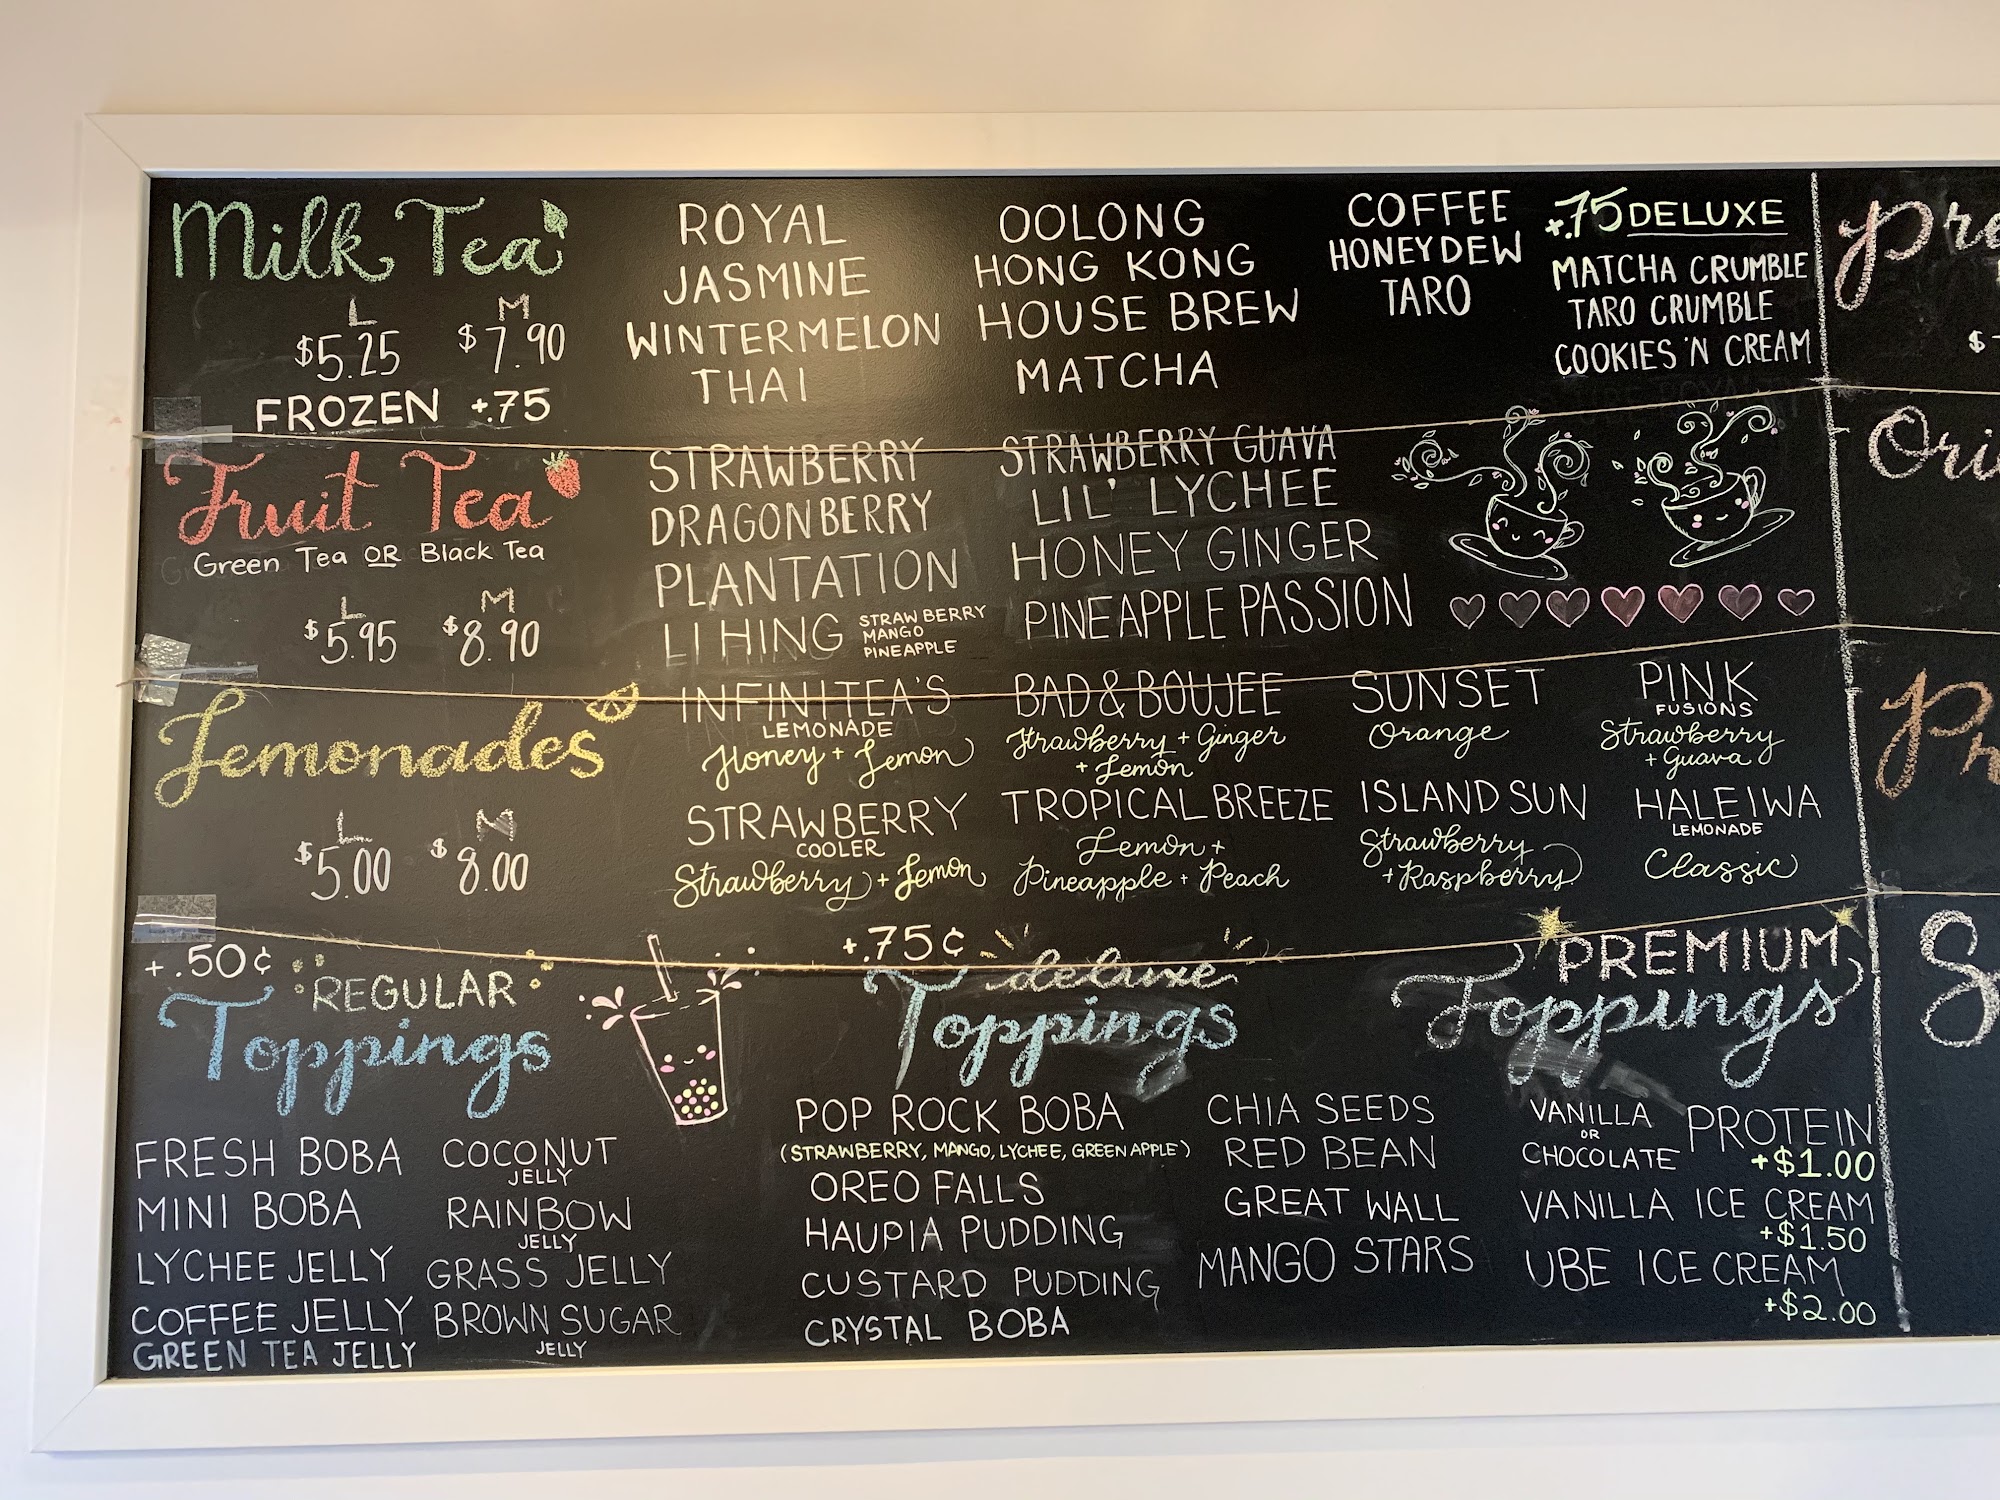 Milk Tea
L M
$5.25 $7.90
FROZEN +.75
ROYAL
JASMINE
WINTERMELON
THAI
OOLONG
HONG KONG
HOUSE BREW
MATCHA
COFFEE
HONEYDEW
TARO
+.75 DELUXE
MATCHA CRUMBLE
TARO CRUMBLE
COOKIES 'N CREAM
Fruit Tea
Green Tea OR Black Tea
L M
$5.95 $8.90
STRAWBERRY
DRAGONBERRY
PLANTATION
LI HING STRAWBERRY
MANGO
PINEAPPLE
STRAWBERRY GUAVA
LIL' LYCHEE
HONEY GINGER
PINEAPPLE PASSION
Lemonades
L M
$5.00 $8.00
INFINITEA'S
LEMONADE
Honey + Lemon
STRAWBERRY
COOLER
Strawberry + Lemon
BAD & BOUJEE
Strawberry + Ginger
+ Lemon
TROPICAL BREEZE
Lemon +
Pineapple + Peach
SUNSET
Orange
ISLAND SUN
Strawberry
+ Raspberry
PINK
FUSIONS
Strawberry
+ Guava
HALEIWA
LEMONADE
Classic
+.50¢
REGULAR
Toppings
FRESH BOBA
MINI BOBA
LYCHEE JELLY
COFFEE JELLY
GREEN TEA JELLY
COCONUT
JELLY
RAINBOW
JELLY
GRASS JELLY
BROWN SUGAR
JELLY
+.75¢
deluxe
Toppings
POP ROCK BOBA
(STRAWBERRY, MANGO, LYCHEE, GREEN APPLE)
OREO FALLS
HAUPIA PUDDING
CUSTARD PUDDING
CRYSTAL BOBA
CHIA SEEDS
RED BEAN
GREAT WALL
MANGO STARS
PREMIUM
Toppings
VANILLA
OR
CHOCOLATE PROTEIN
+$1.00
VANILLA ICE CREAM
+$1.50
UBE ICE CREAM
+$2.00